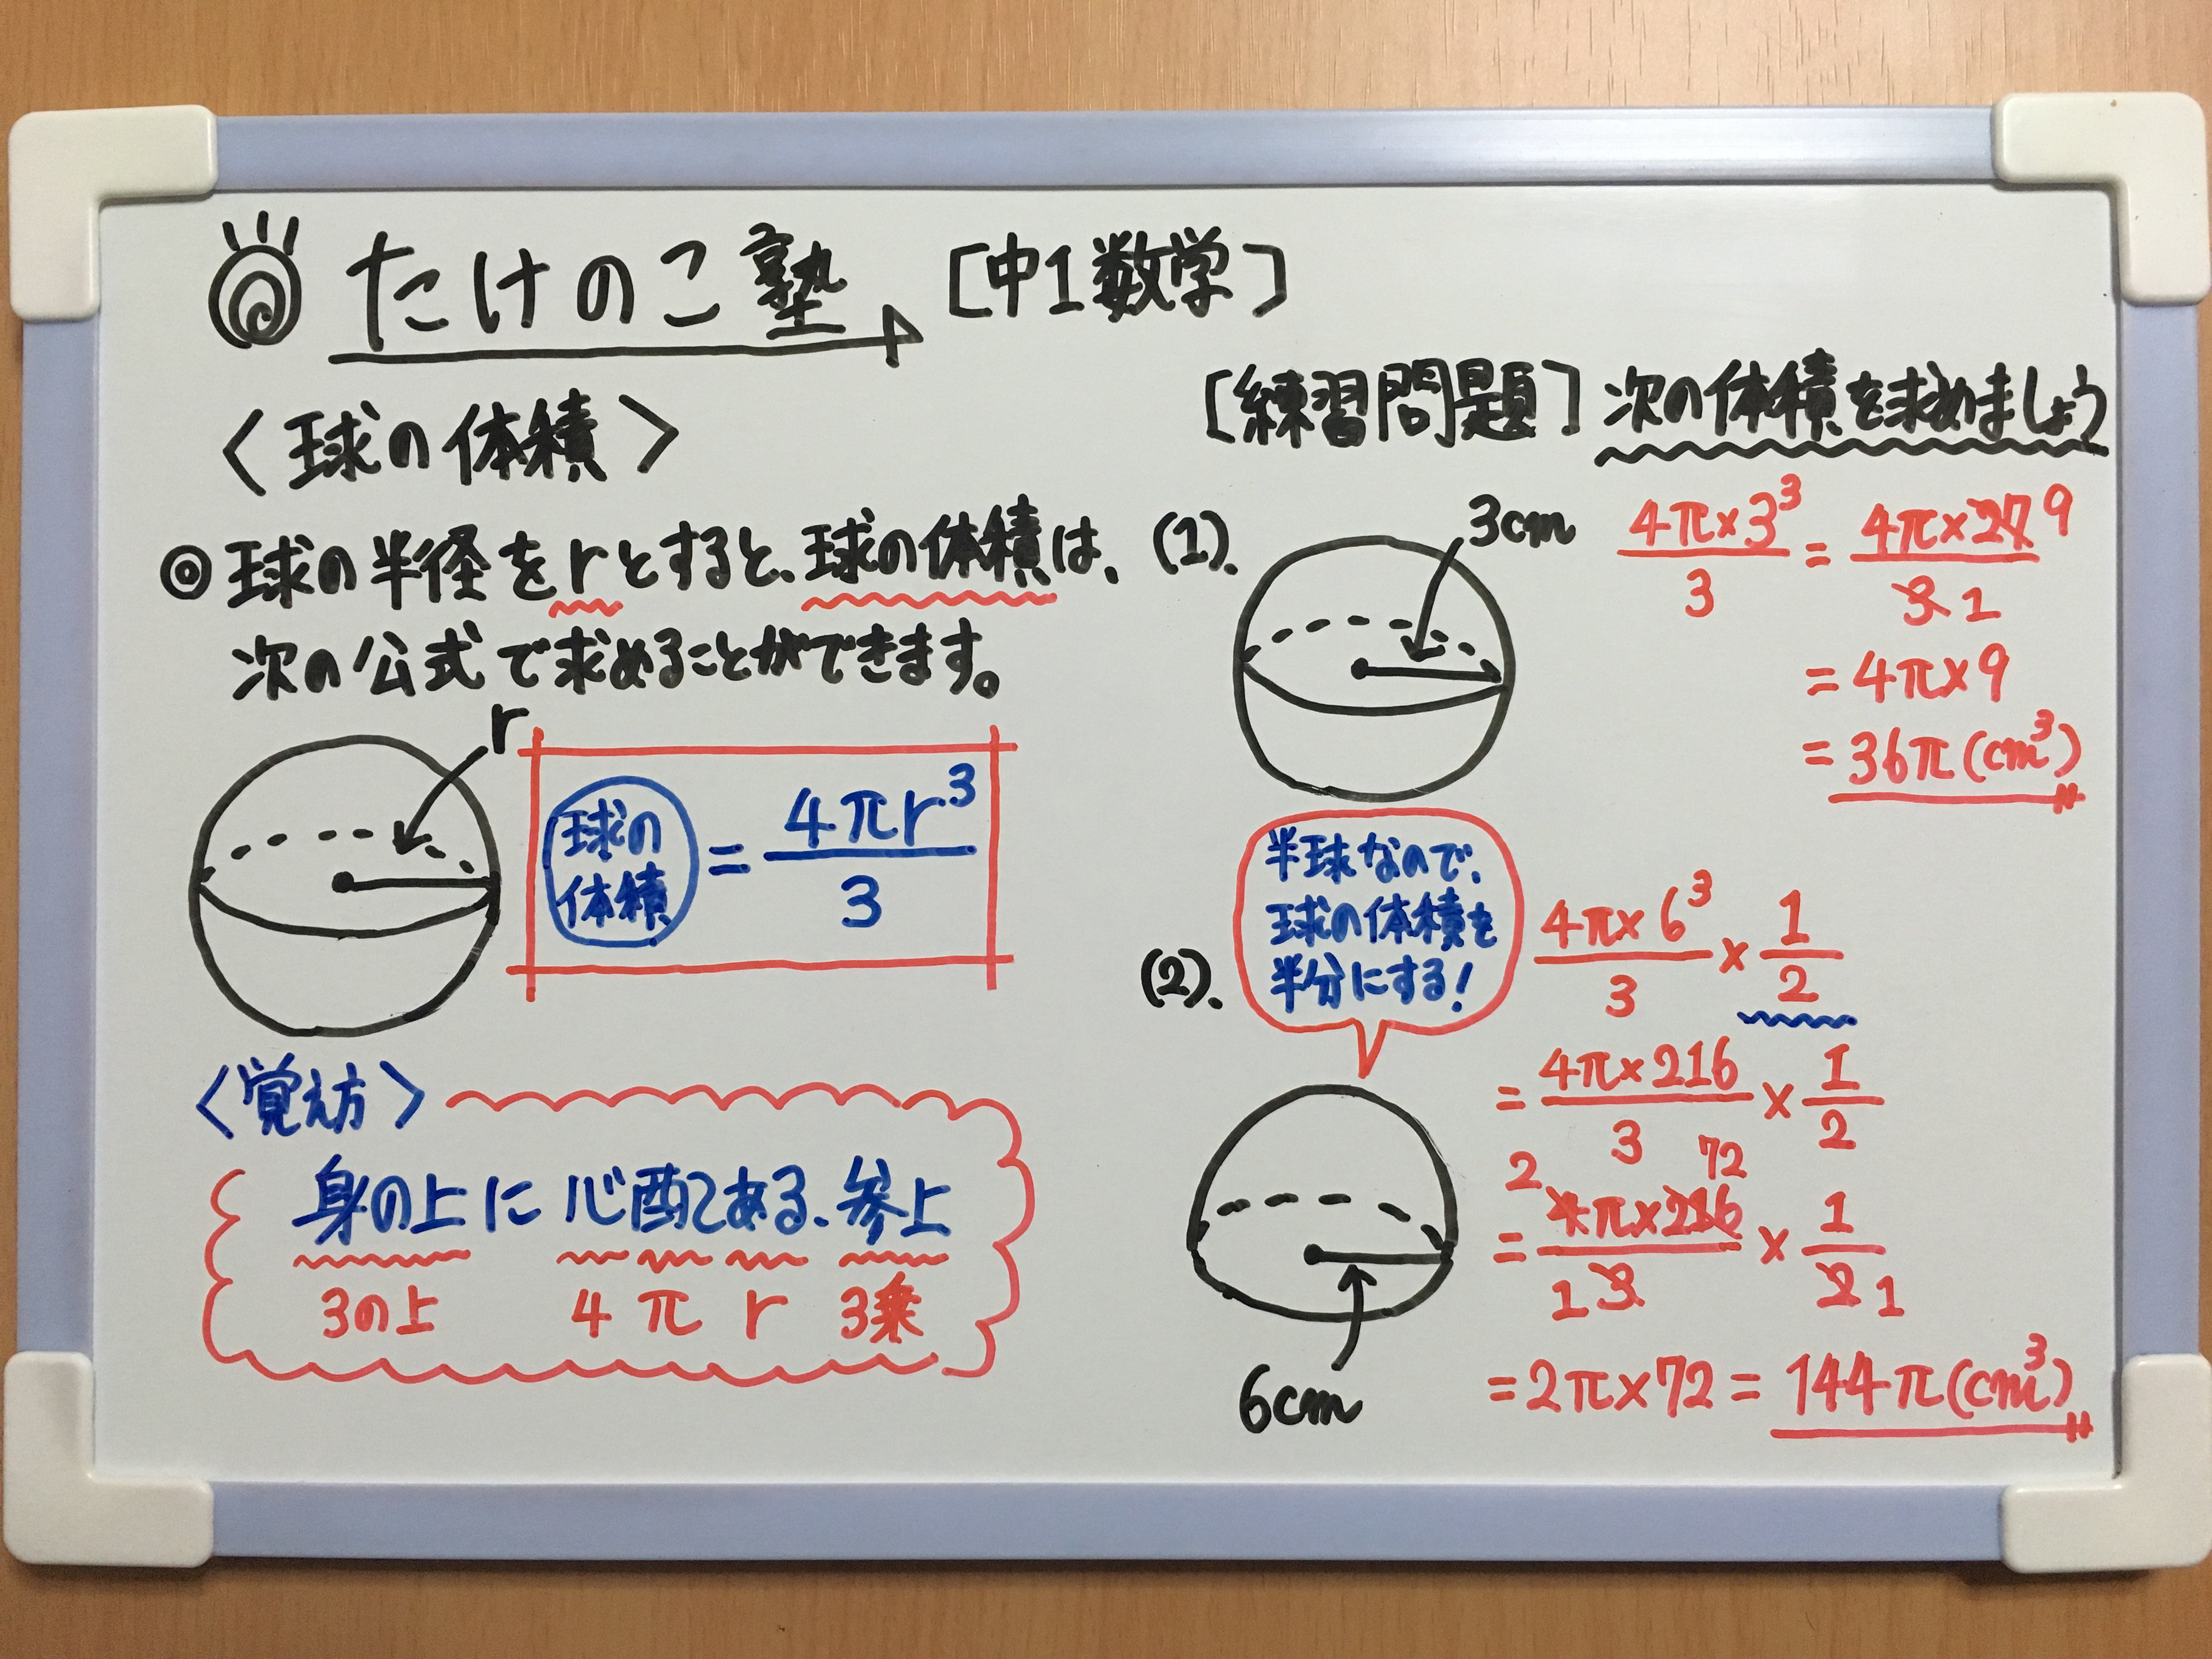 たけのこ塾 [中1数学]
〈球の体積〉
◎球の半径をrとすると、球の体積は、
次の公式で求めることができます。
r
球の体積 = 4πr³/3
〈覚え方〉
身の上に心配ある、参上
3の上 4 π r 3乗
[練習問題] 次の体積を求めましょう
(1).
3cm
4π×3³/3 = 4π×27/3 9 1
= 4π×9
= 36π(cm³)
(2).
半球なので、
球の体積を
半分にする!
6cm
4π×6³/3 × 1/2
= 4π×216/3 × 1/2
2 72
= 4π×216/3 × 1/2
1 1
= 2π×72 = 144π(cm³)